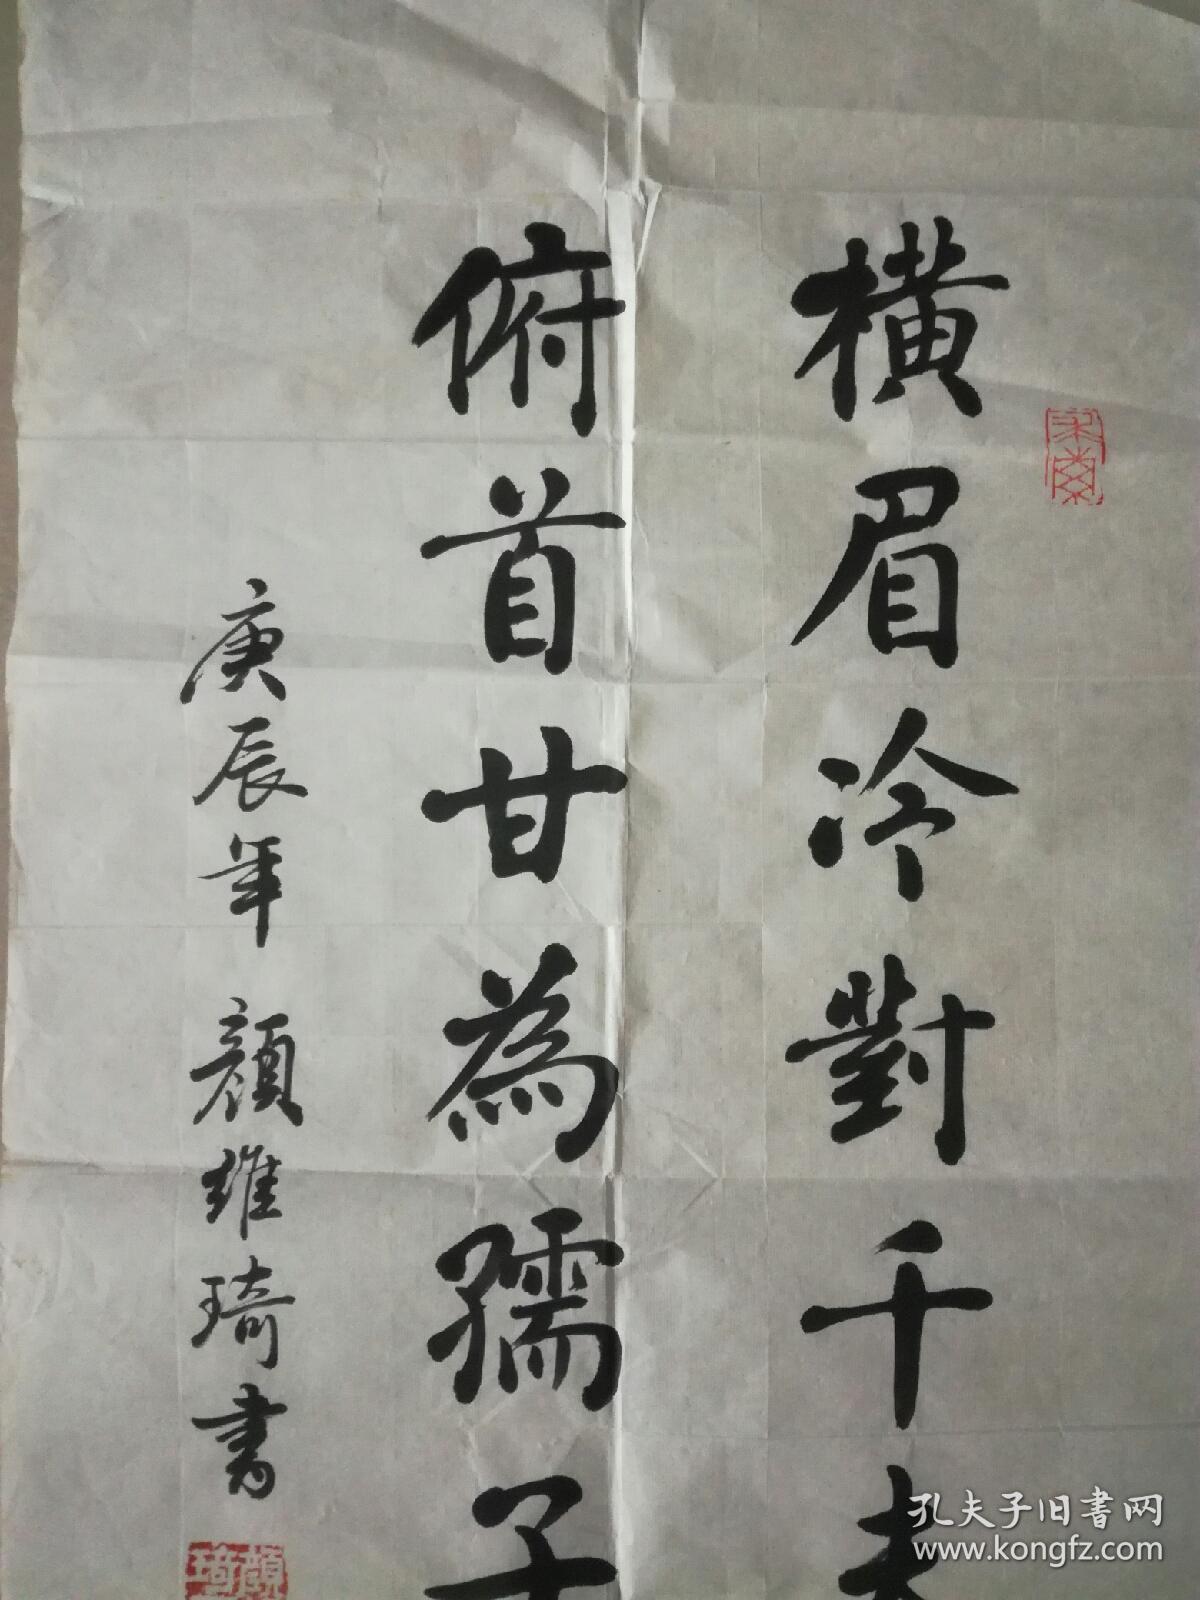 橫眉冷對千夫
俯首甘為孺子
庚辰年 顏維琦書
孔夫子旧书网
www.kongfz.com